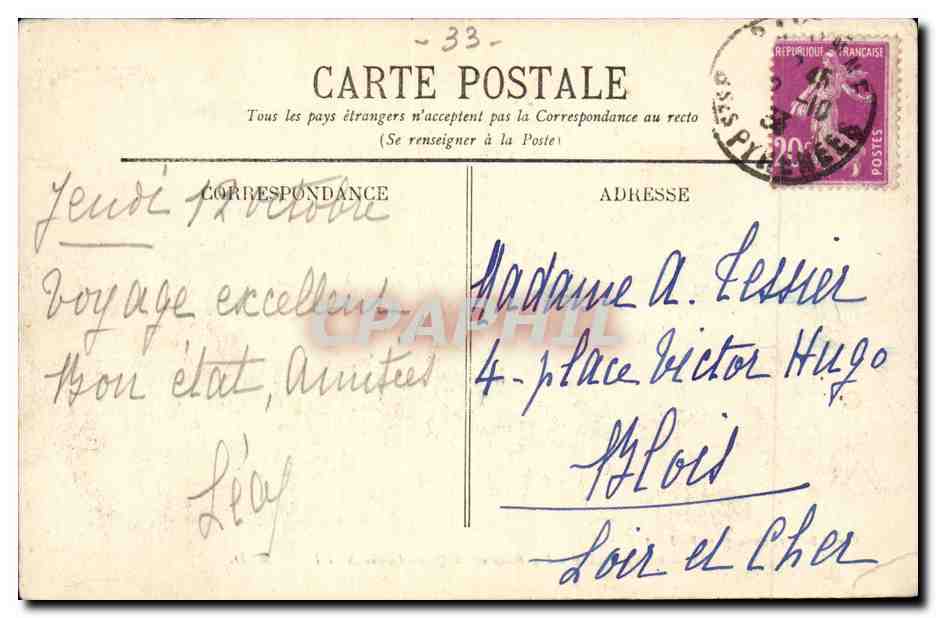 - 33 -
CARTE POSTALE
Tous les pays étrangers n'acceptent pas la Correspondance au recto
(Se renseigner à la Poste)
RÉPUBLIQUE FRANÇAISE
20c
POSTES
Bses PYRENEES
CORRESPONDANCE
Jeudi 12 octobre
Voyage excellent
Bon état, Amitiés
ADRESSE
Madame A. Tessier
4 - place Victor Hugo
Blois
Loir et Cher
CPAPHIL